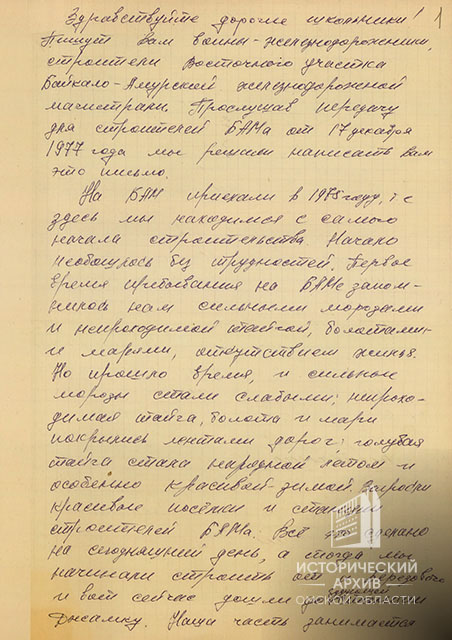 Здравствуйте дорогие школьники! 1
Пишут вам воины-железнодорожники,
строители Восточного участка
Байкало-Амурской железнодорожной
магистрали. Прослушав передачу
для строителей БАМа от 17 декабря
1977 года мы решили написать вам
это письмо.
На БАМ приехали в 1975 году, т.е
здесь мы находимся с самого
начала строительства. Начало
необошлось без трудностей. Первое
время пребывания на БАМе запом-
нилось нам сильными морозами
и непроходимой тайгой, болотами-
и марями, отсутствием жилья.
Но прошло время, и сильные
морозы стали слабыми; непрохо-
димая тайга, болота и мари
покрылись лентами дорог; голубая
тайга стала нарядной летом и
особенно красивой зимой.
красивые посёлки и станции
строителей БАМа. Всё это сделано
на сегодняшний день, а тогда мы
начинали строить от Березового
и вот сейчас дошли до станции
Джамку. Наша часть занимается
ИСТОРИЧЕСКИЙ
АРХИВ
ОМСКОЙ ОБЛАСТИ